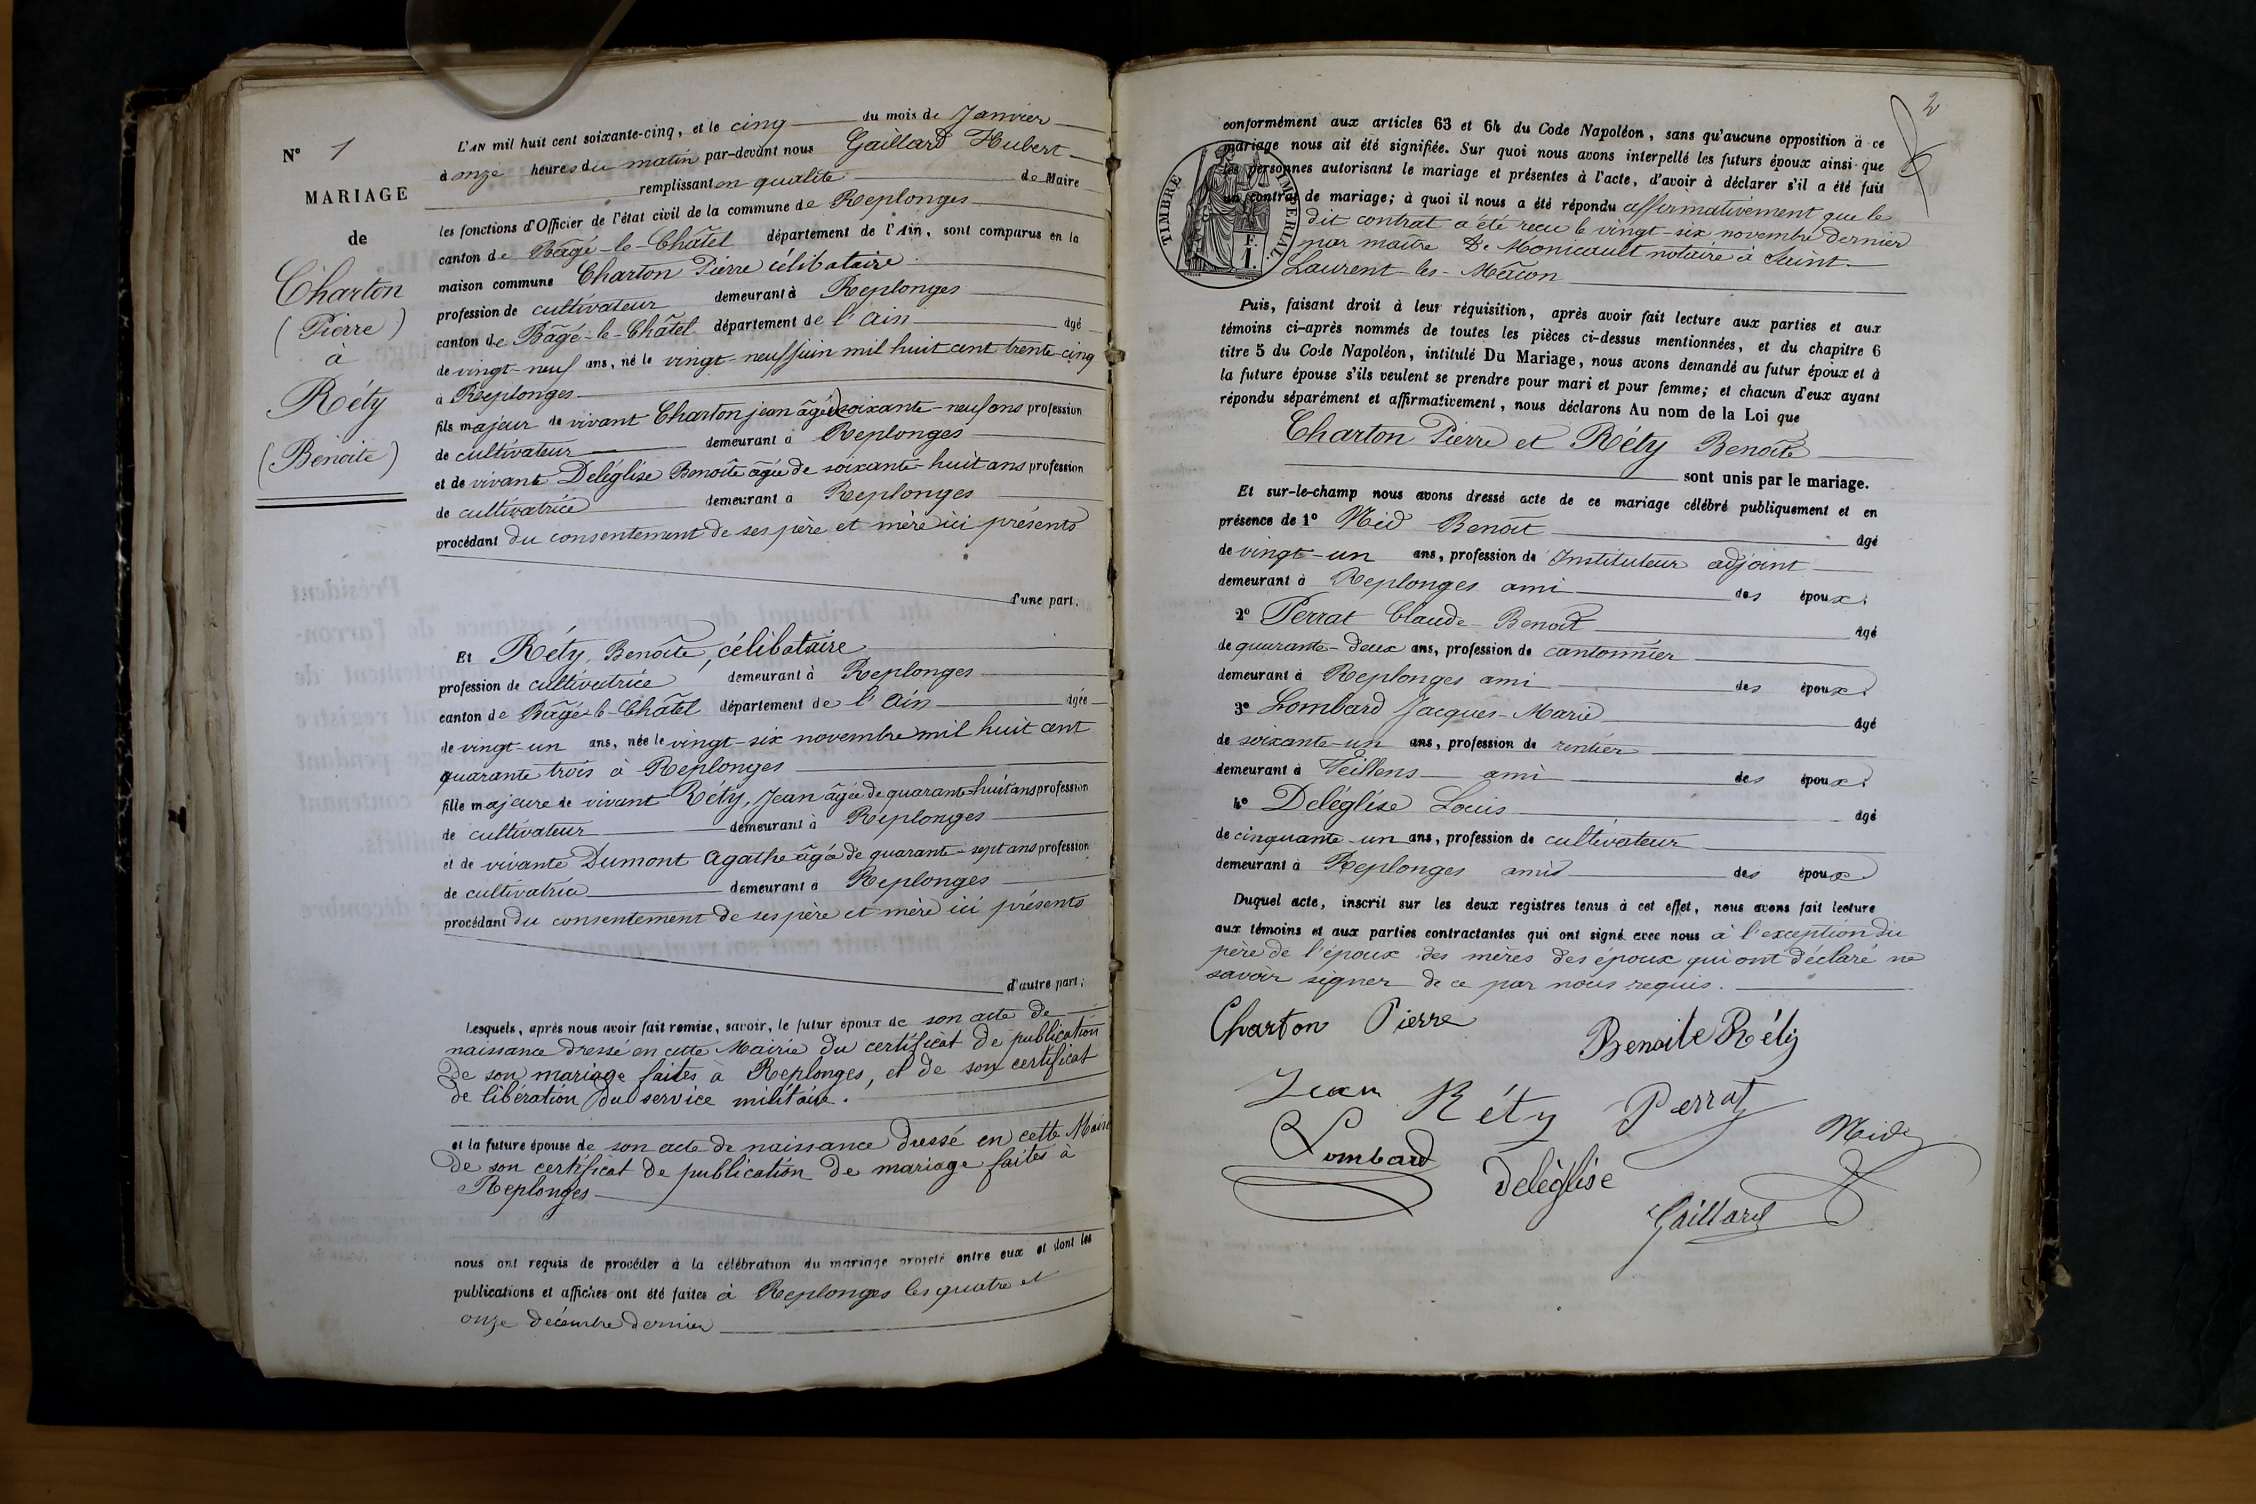 N° 1
MARIAGE
de
Charton
(Pierre)
à
Réty
(Benoite)
L'AN mil huit cent soixante-cinq, et le cinq du mois de Janvier
à onze heures du matin par-devant nous Gaillard Hubert
remplissant en qualité de Maire
les fonctions d'Officier de l'état civil de la commune de Replonges
canton de Bâgé-le-Châtel département de l'Ain, sont comparus en la
maison commune Charton Pierre célibataire
profession de cultivateur demeurant à Replonges
canton de Bâgé-le-Châtel département de l'Ain âgé
de vingt-neuf ans, né le vingt-neuf juin mil huit cent trente-cinq
à Replonges
fils majeur de vivant Charton jean âgé soixante-neuf ans profession
de cultivateur demeurant à Replonges
et de vivante Deléglise Benoite âgée de soixante-huit ans profession
de cultivatrice demeurant à Replonges
procédant du consentement de ses père et mère ici présents
d'une part.
Et Réty, Benoite, célibataire
profession de cultivatrice demeurant à Replonges
canton de Bâgé-le-Châtel département de l'Ain âgée
de vingt-un ans, née le vingt-six novembre mil huit cent
quarante trois à Replonges
fille majeure de vivant Réty, Jean âgé de quarante-huit ans profession
de cultivateur demeurant à Replonges
et de vivante Dumont Agathe âgée de quarante-sept ans profession
de cultivatrice demeurant à Replonges
procédant du consentement de ses père et mère ici présents
d'autre part;
Lesquels, après nous avoir fait remise, savoir, le futur époux de son acte de
naissance dressé en cette Mairie du certificat de publication
de son mariage faites à Replonges, et de son certificat
de libération du service militaire.
et la future épouse de son acte de naissance dressé en cette Mairie
de son certificat de publication de mariage faites à
Replonges
nous ont requis de procéder à la célébration du mariage projeté entre eux et dont les
publications et affiches ont été faites à Replonges les quatre et
onze décembre dernier
2
conformément aux articles 63 et 64 du Code Napoléon, sans qu'aucune opposition à ce
mariage nous ait été signifiée. Sur quoi nous avons interpellé les futurs époux ainsi que
les personnes autorisant le mariage et présentes à l'acte, d'avoir à déclarer s'il a été fait
un contrat de mariage; à quoi il nous a été répondu affirmativement que le
dit contrat a été reçu le vingt-six novembre dernier
par maître De Monicault notaire à Saint-
Laurent-les-Mâcon
TIMBRE IMPÉRIAL
F.
1.
Puis, faisant droit à leur réquisition, après avoir fait lecture aux parties et aux
témoins ci-après nommés de toutes les pièces ci-dessus mentionnées, et du chapitre 6
titre 5 du Code Napoléon, intitulé Du Mariage, nous avons demandé au futur époux et à
la future épouse s'ils veulent se prendre pour mari et pour femme; et chacun d'eux ayant
répondu séparément et affirmativement, nous déclarons Au nom de la Loi que
Charton Pierre et Réty Benoite
sont unis par le mariage.
Et sur-le-champ nous avons dressé acte de ce mariage célébré publiquement et en
présence de 1° Nid Benoit âgé
de vingt-un ans, profession de Instituteur adjoint
demeurant à Replonges ami des époux.
2° Perrat Claude-Benoit âgé
de quarante-deux ans, profession de cantonnier
demeurant à Replonges ami des époux.
3° Lombard Jacques-Marie âgé
de soixante-un ans, profession de rentier
demeurant à Feillens ami des époux.
4° Deléglise Louis âgé
de cinquante-un ans, profession de cultivateur
demeurant à Replonges amis des époux
Duquel acte, inscrit sur les deux registres tenus à cet effet, nous avons fait lecture
aux témoins et aux parties contractantes qui ont signé avec nous à l'exception du
père de l'époux des mères des époux qui ont déclaré ne
savoir signer de ce par nous requis.
Charton Pierre
Benoite Réty
Jean Réty Perrat
Lombard Nid
Deléglise
Gaillard